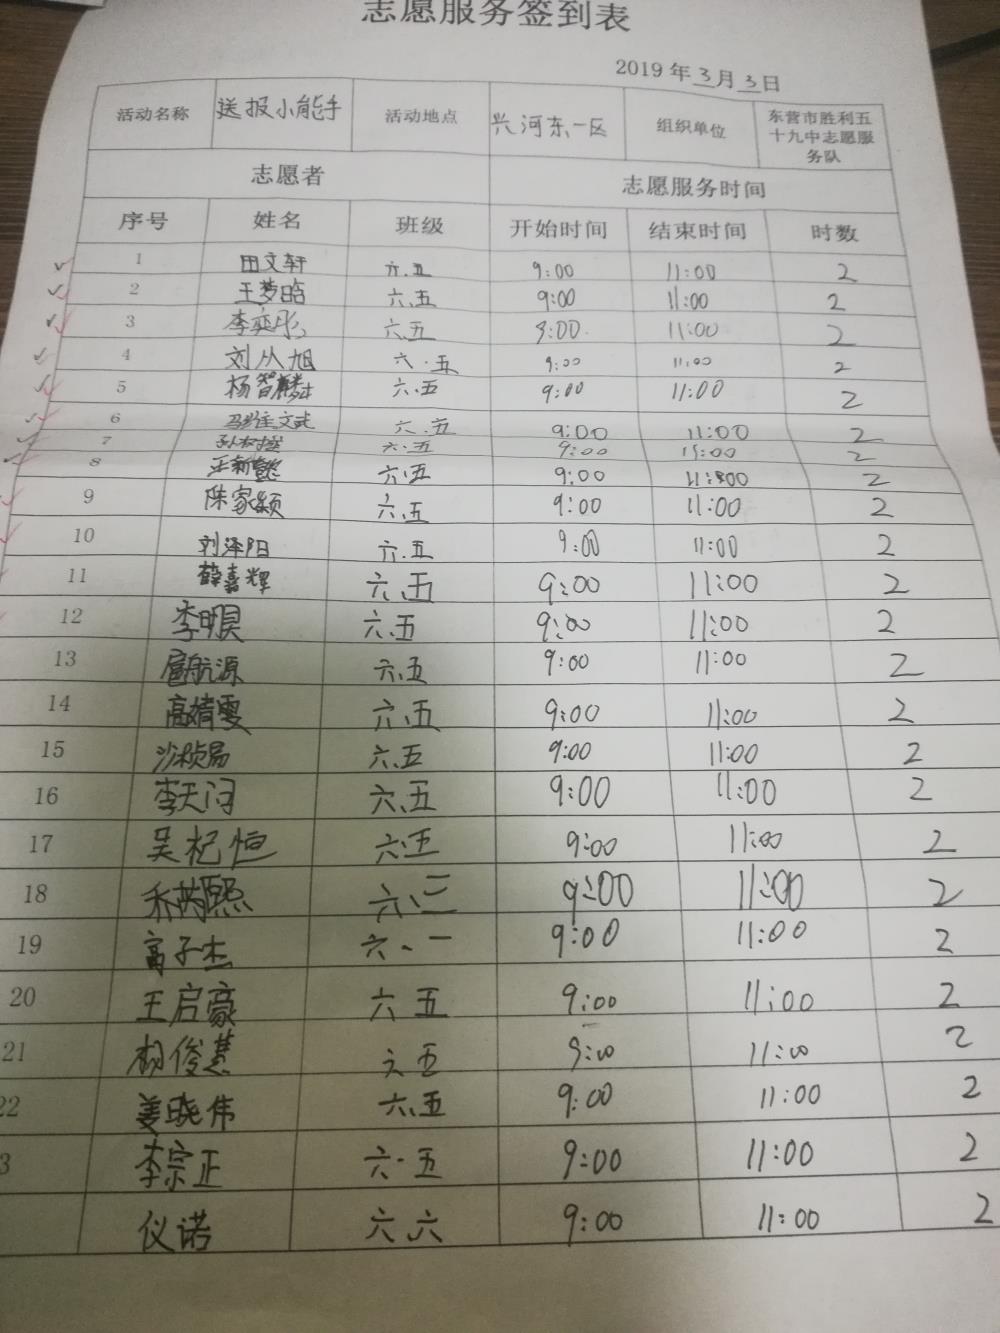 志愿服务签到表
2019 年 3 月 3 日
活动名称 送报小能手 活动地点 兴河东一区 组织单位 东营市胜利五十九中志愿服务队
志愿者 志愿服务时间
序号 姓名 班级 开始时间 结束时间 时数
1 田文轩 六.五 9:00 11:00 2
2 王梦晗 六.五 9:00 11:00 2
3 李奕彤 六.五 9:00 11:00 2
4 刘从旭 六.五 9:00 11:00 2
5 杨智麟 六.五 9:00 11:00 2
6 六.五 9:00 11:00 2
7 六.五 9:00 11:00 2
8 六.五 9:00 11:00 2
9 陈家颖 六.五 9:00 11:00 2
10 刘泽阳 六.五 9:00 11:00 2
11 薛嘉辉 六.五 9:00 11:00 2
12 李明昊 六.五 9:00 11:00 2
13 扈航源 六.五 9:00 11:00 2
14 高婧雯 六.五 9:00 11:00 2
15 六.五 9:00 11:00 2
16 李天问 六.五 9:00 11:00 2
17 吴杞恒 六.五 9:00 11:00 2
18 乔芮熙 六.三 9:00 11:00 2
19 高子杰 六.一 9:00 11:00 2
20 王启豪 六五 9:00 11:00 2
21 杨俊慧 六五 9:00 11:00 2
22 姜晓伟 六.五 9:00 11:00 2
3 李宗正 六.五 9:00 11:00 2
仪诺 六.六 9:00 11:00 2